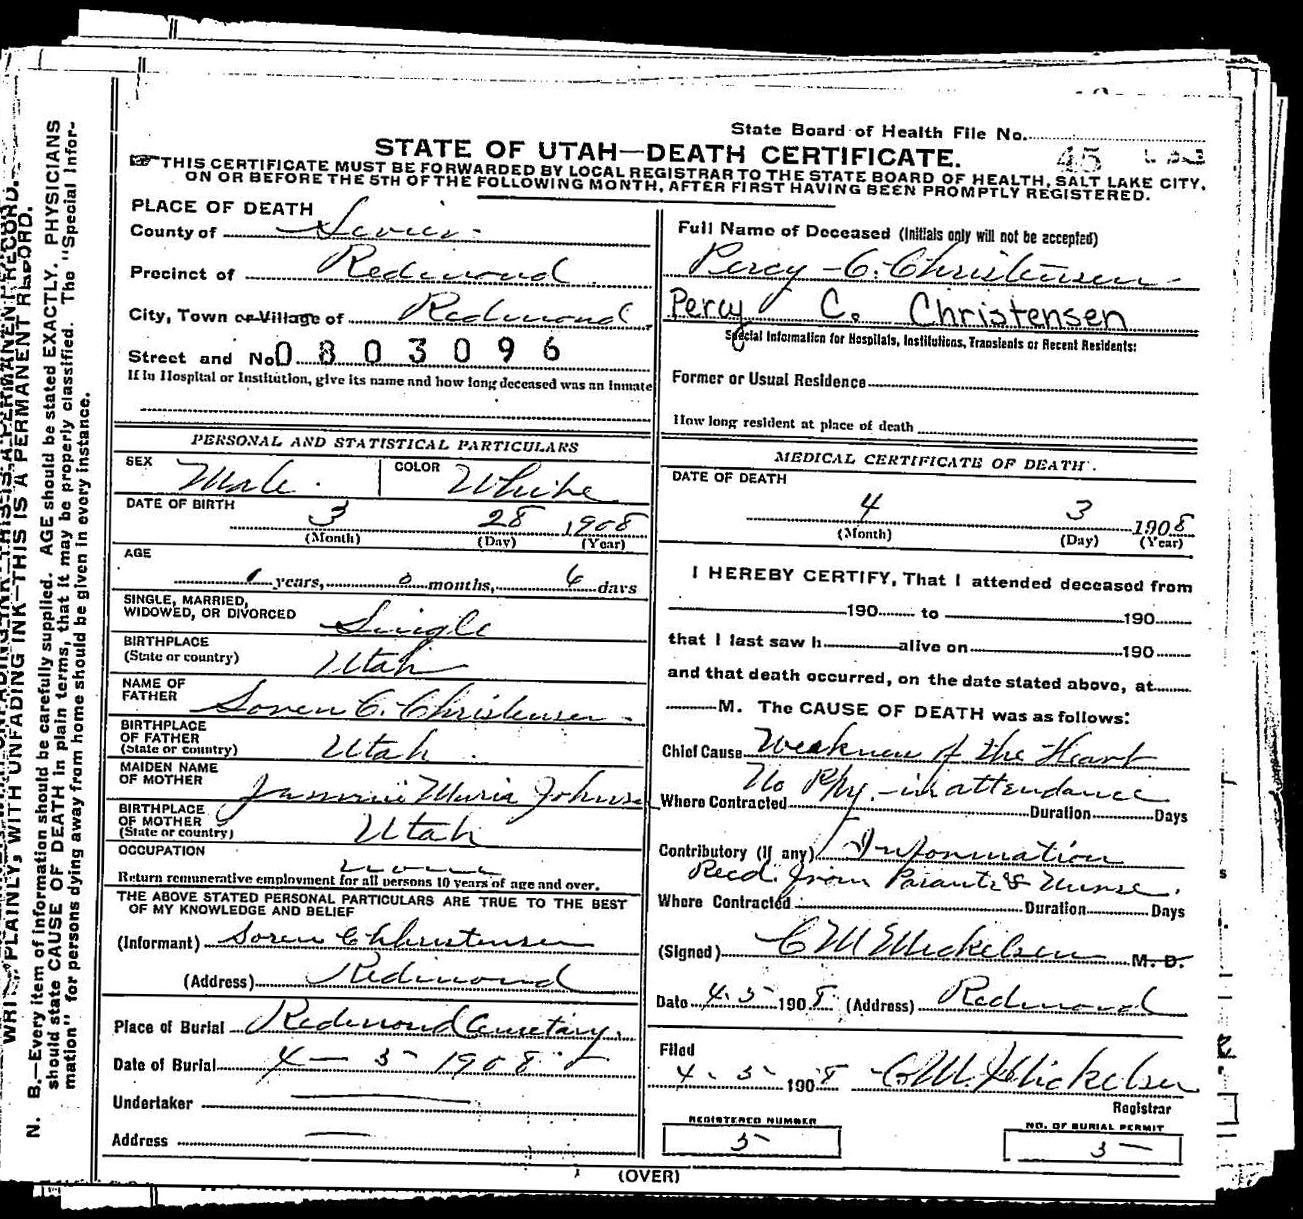 State Board of Health File No. 45
STATE OF UTAH—DEATH CERTIFICATE.
THIS CERTIFICATE MUST BE FORWARDED BY LOCAL REGISTRAR TO THE STATE BOARD OF HEALTH, SALT LAKE CITY,
ON OR BEFORE THE 5TH OF THE FOLLOWING MONTH, AFTER FIRST HAVING BEEN PROMPTLY REGISTERED.
PLACE OF DEATH
County of Sevier
Precinct of Redmond
City, Town or Village of Redmond
Street and No. 0803096
If in Hospital or Institution, give its name and how long deceased was an inmate
PERSONAL AND STATISTICAL PARTICULARS
SEX Male COLOR White
DATE OF BIRTH
3 28 1908
(Month) (Day) (Year)
AGE
years, 0 months, 6 days
SINGLE, MARRIED,
WIDOWED, OR DIVORCED Single
BIRTHPLACE
(State or country) Utah
NAME OF
FATHER Soren C. Christensen
BIRTHPLACE
OF FATHER
(State or country) Utah
MAIDEN NAME
OF MOTHER Maria Johns
BIRTHPLACE
OF MOTHER
(State or country) Utah
OCCUPATION
none
Return remunerative employment for all persons 10 years of age and over.
THE ABOVE STATED PERSONAL PARTICULARS ARE TRUE TO THE BEST
OF MY KNOWLEDGE AND BELIEF
(Informant) Soren C Christensen
(Address) Redmond
Place of Burial Redmond Cemetary.
Date of Burial 4 - 5 - 1908
Undertaker
Address
Full Name of Deceased (Initials only will not be accepted)
Percy C. Christensen
Percy C. Christensen
Special Information for Hospitals, Institutions, Transients or Recent Residents:
Former or Usual Residence
How long resident at place of death
MEDICAL CERTIFICATE OF DEATH.
DATE OF DEATH
4 3 1908
(Month) (Day) (Year)
I HEREBY CERTIFY, That I attended deceased from
190 to 190
that I last saw h alive on 190
and that death occurred, on the date stated above, at
M. The CAUSE OF DEATH was as follows:
Chief Cause Weakness of the Heart
No Phy. in attendance
Where Contracted Duration Days
Contributory (if any) Information
Recd. from Parants & Nurse.
Where Contracted Duration Days
(Signed) C M Mickelsen M. D.
Date 4-5- 1908 (Address) Redmond
Filed
4-5- 1908 C. M. Mickelsen
Registrar
REGISTERED NUMBER
5
NO. OF BURIAL PERMIT
5
(OVER)
WRITE PLAINLY, WITH UNFADING INK—THIS IS A PERMANENT RECORD.
N. B.—Every item of information should be carefully supplied. AGE should be stated EXACTLY. PHYSICIANS
should state CAUSE OF DEATH in plain terms, that it may be properly classified. The "Special Infor-
mation" for persons dying away from home should be given in every instance.